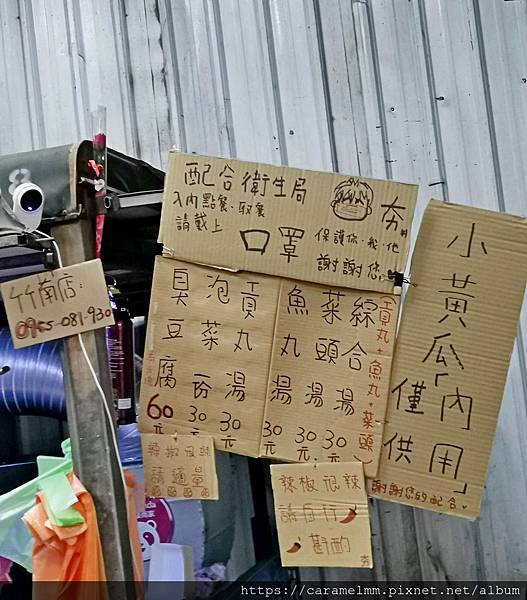 配合衛生局
入內點餐、取餐
請戴上
口罩
夯
保護你.我.他
謝謝您
竹南店:
0955-081-930
臭豆腐 60元
泡菜一份 30元
貢丸湯 30元
魚丸湯 30元
菜頭湯 30元
綜合湯 30元
(貢丸+魚丸+菜頭)
小黃瓜「內用」
僅供
謝謝您的配合
請適量
辣椒很辣
請自行
斟酌
夯
https://caramelmm.pixnet.net/album